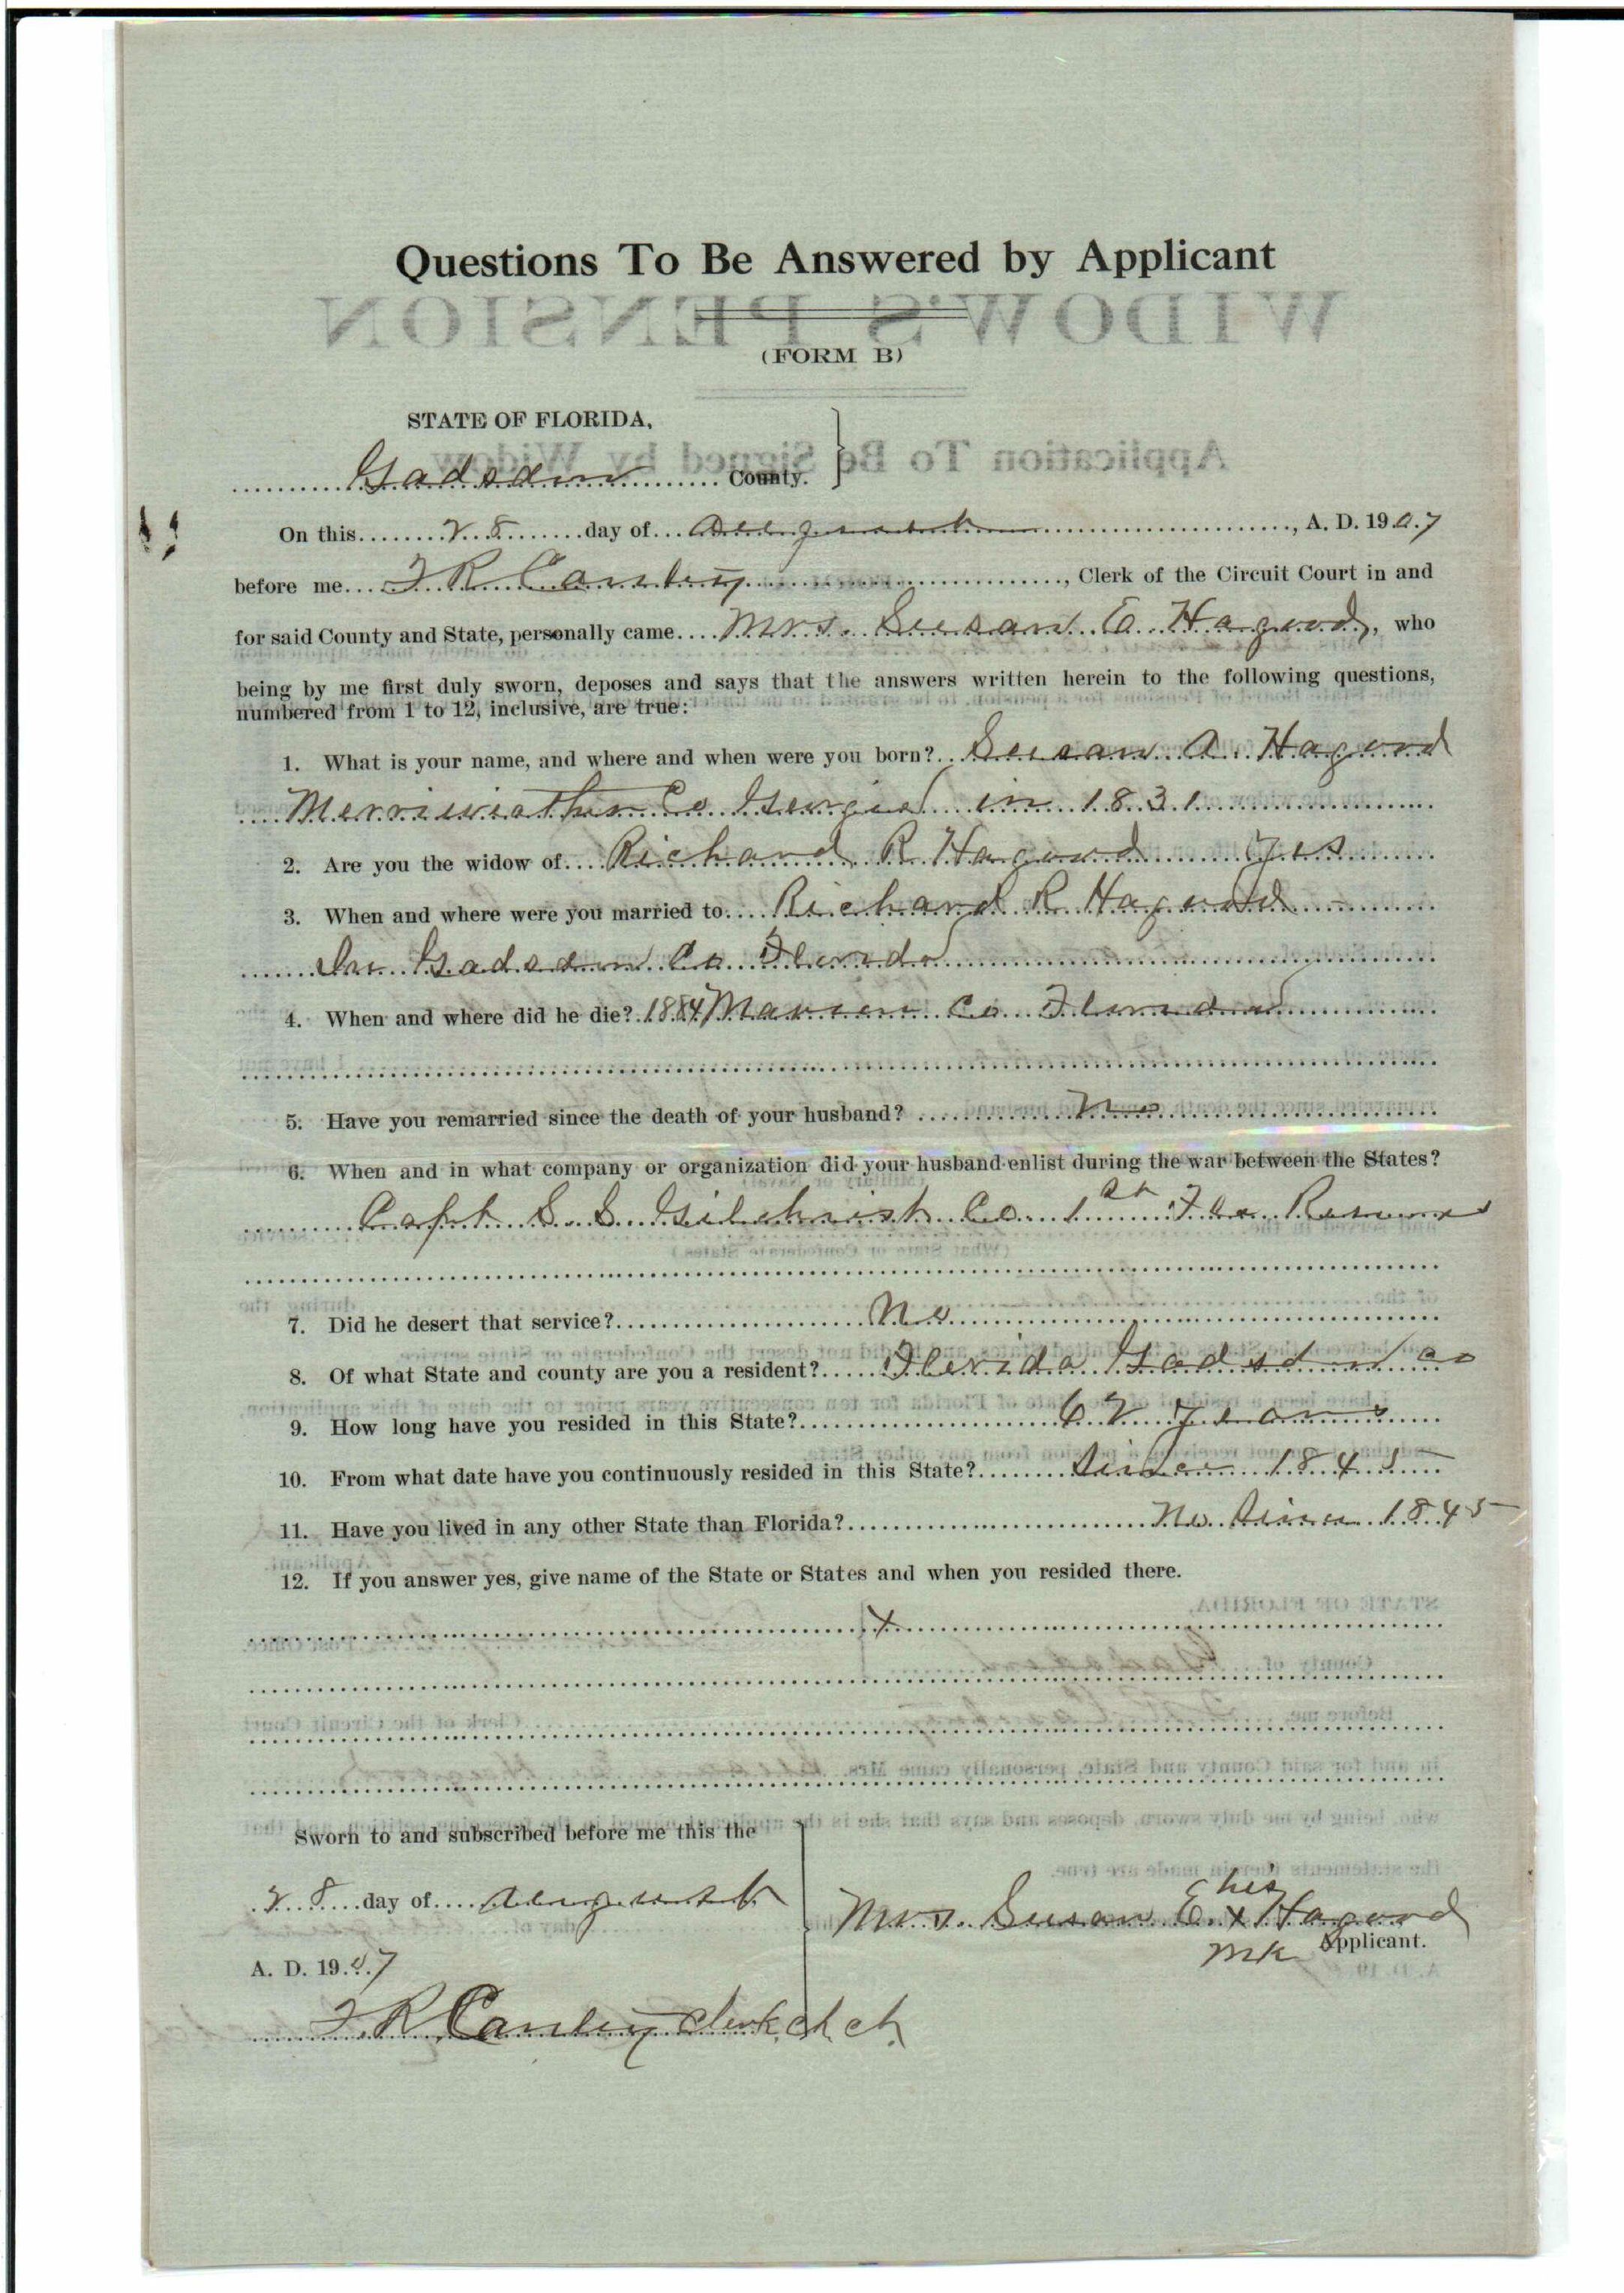 Questions To Be Answered by Applicant
WIDOW'S PENSION
(FORM B)
STATE OF FLORIDA,
Application To Be Signed by Widow
Gadsden County.
On this 28 day of August, A. D. 1907
before me F R Canley, Clerk of the Circuit Court in and
for said County and State, personally came Mrs. Susan E Hagood, who
being by me first duly sworn, deposes and says that the answers written herein to the following questions,
numbered from 1 to 12, inclusive, are true:
1. What is your name, and where and when were you born? Susan A. Hagood
Merriwiather Co Georgia in 1831
2. Are you the widow of Richard R Hagood yes
3. When and where were you married to Richard R Hagood
In Gadsden Co Florida
4. When and where did he die? 1884 Marion Co Florida
5. Have you remarried since the death of your husband? No
6. When and in what company or organization did your husband enlist during the war between the States?
Capt S. S. Gilchrist Co 1st Fla Reserves
7. Did he desert that service? No
8. Of what State and county are you a resident? Florida Gadsden co
9. How long have you resided in this State? 62 years
10. From what date have you continuously resided in this State? Since 1845
11. Have you lived in any other State than Florida? No Since 1845
12. If you answer yes, give name of the State or States and when you resided there.
x
Sworn to and subscribed before me this the
28 day of August
A. D. 1907
his
Mrs. Susan E x Hagood
mk Applicant.
F. R. Canley clerk ct ct